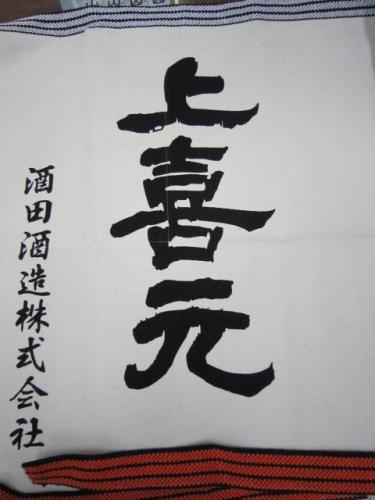 上喜元
酒田酒造株式会社